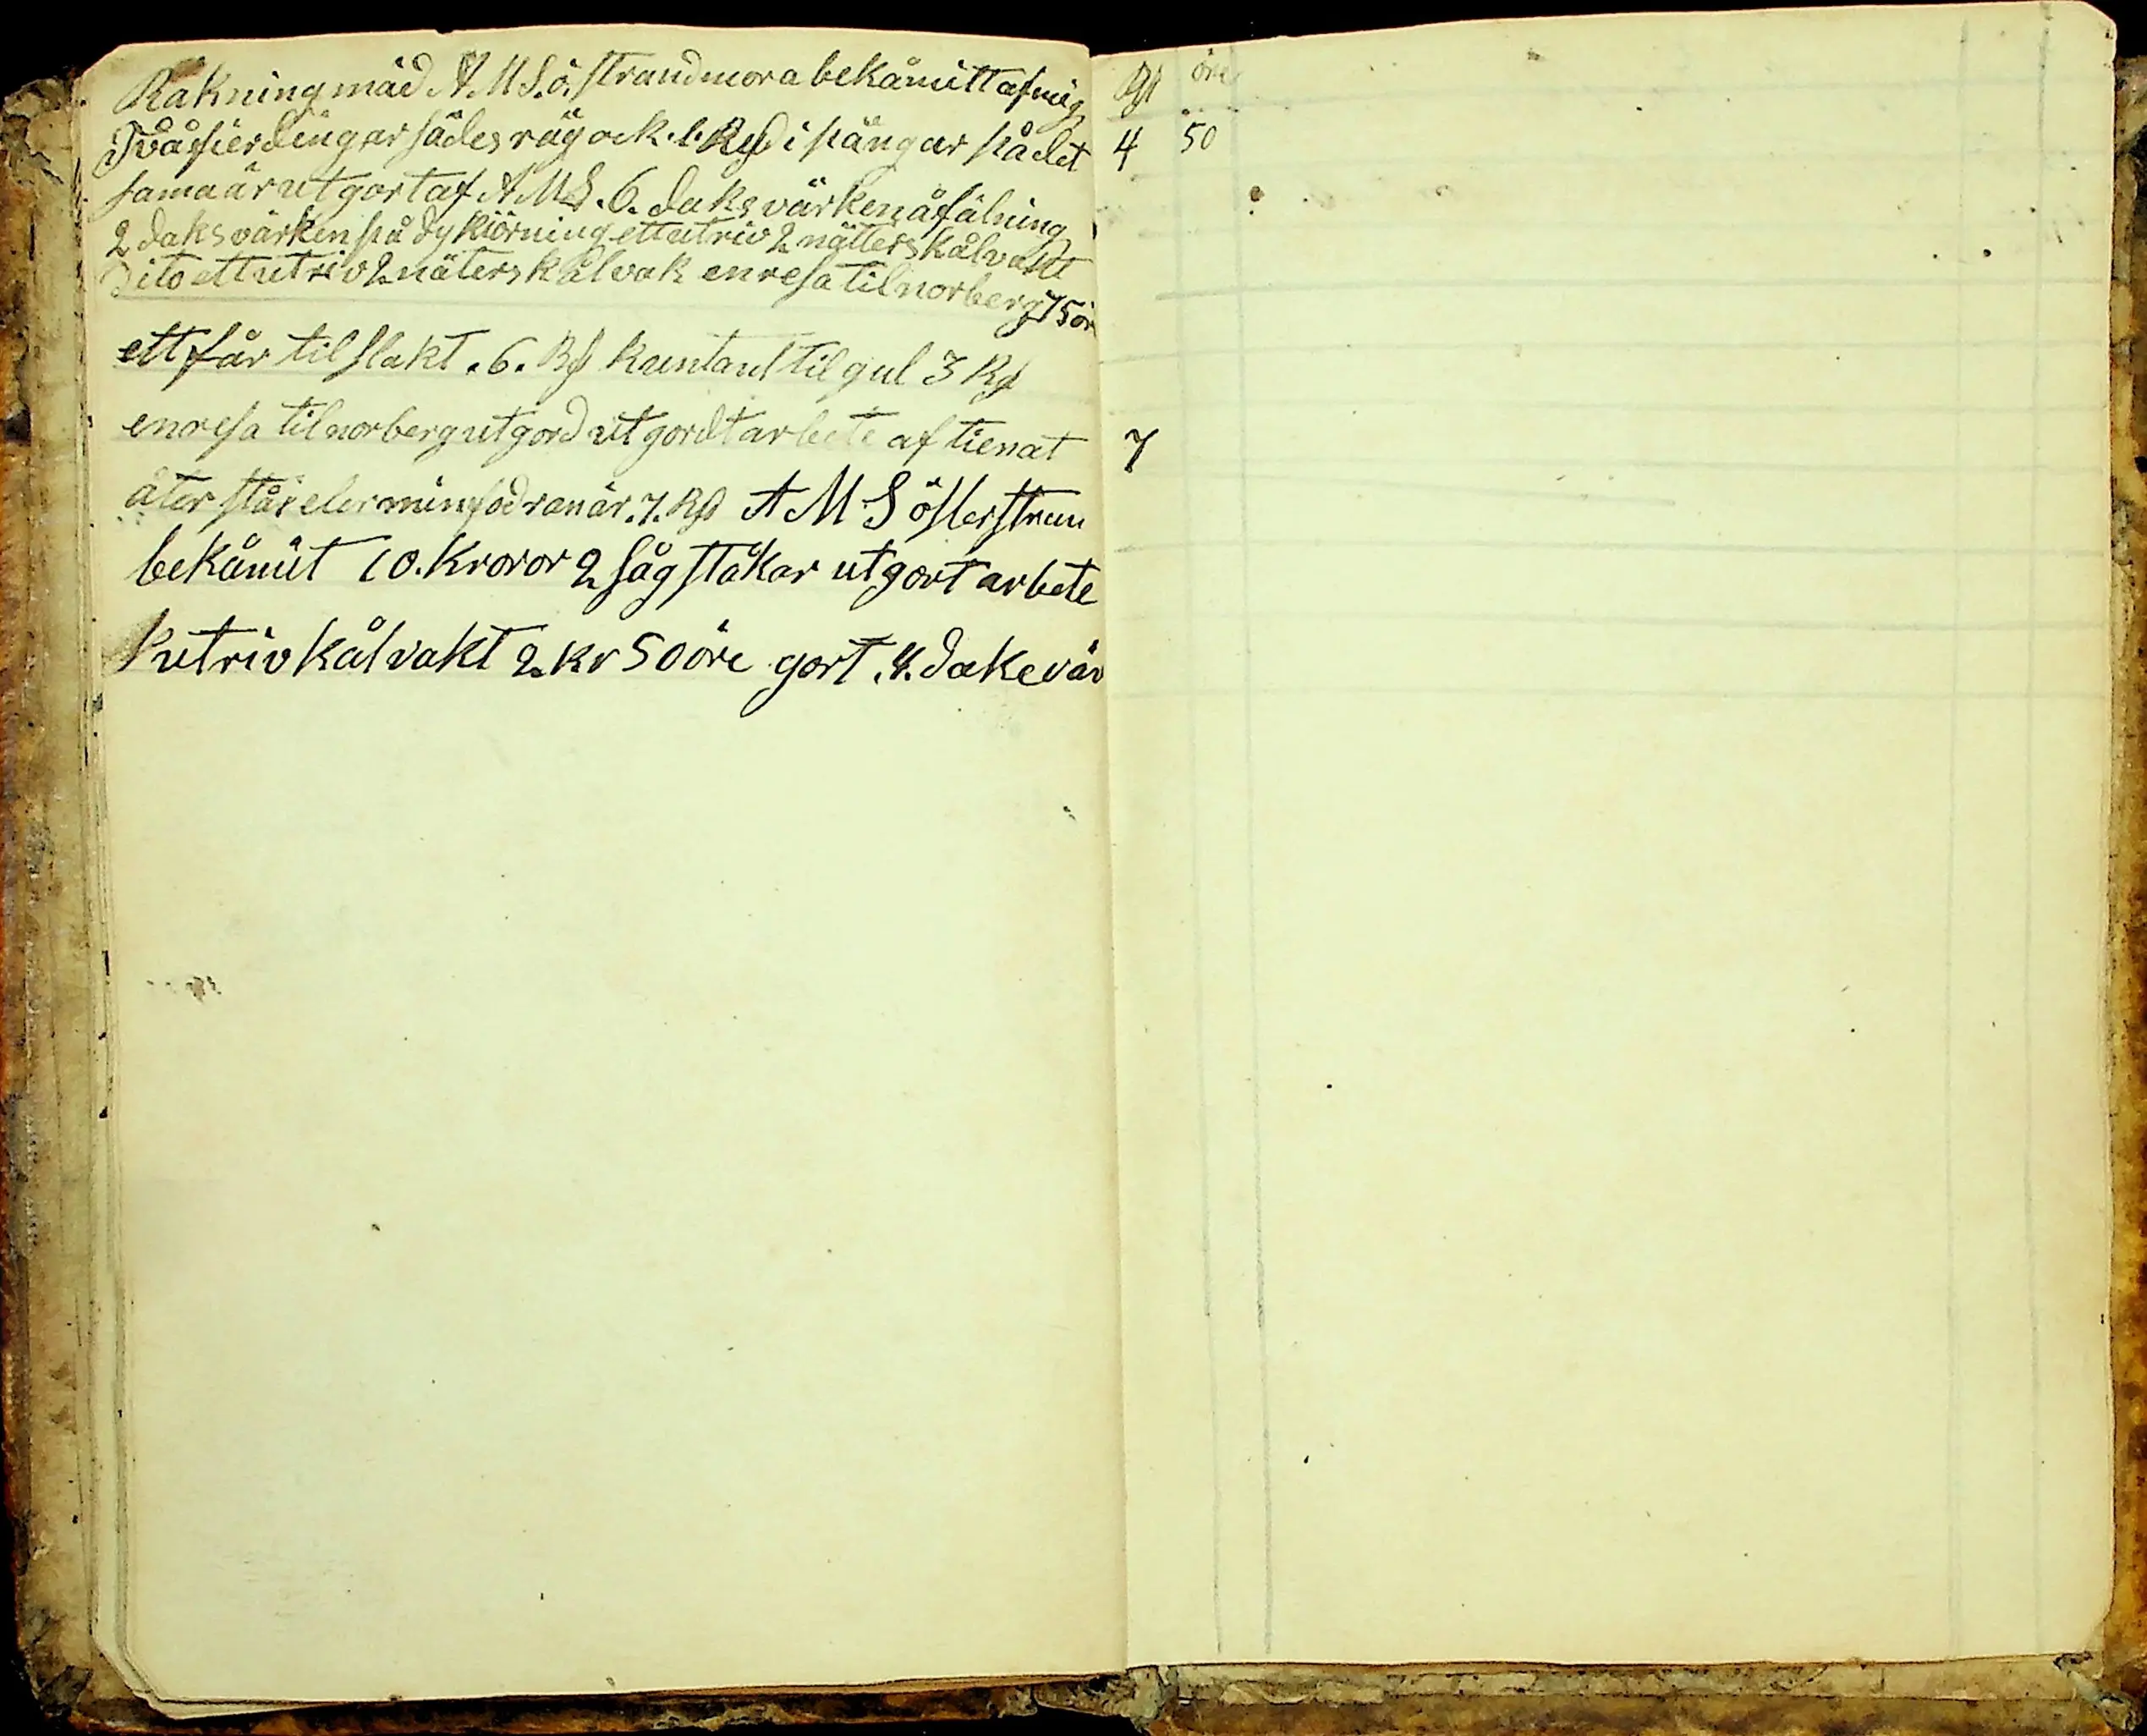 Räkning mäd A. M S. ö. strandmora bekåmitt af mig Rd öre
Två fierdingar sådes råg ock 1. Rd i pängar på det 4 50
sama år ut gort af A M S. 6. daks värken å fälning
2 daks värken på dy kiörning ett utriv 2 nätters kålvakt
Dito ett utriv 2 näters kålvak en resa til norberg 75 ör
ett får til slakt. 6. Rd kuntant til gul 3 Rd
en resa til norberg utgord ut gordt arbete af tienat 7
åter står eler min fodran är. 7. Rd A M S österstran
bekåmit 10. kronor 2 såg ståkar utgort arbete
1 utriv kålvakt 2 kr 50 öre gort. 4. dake vär